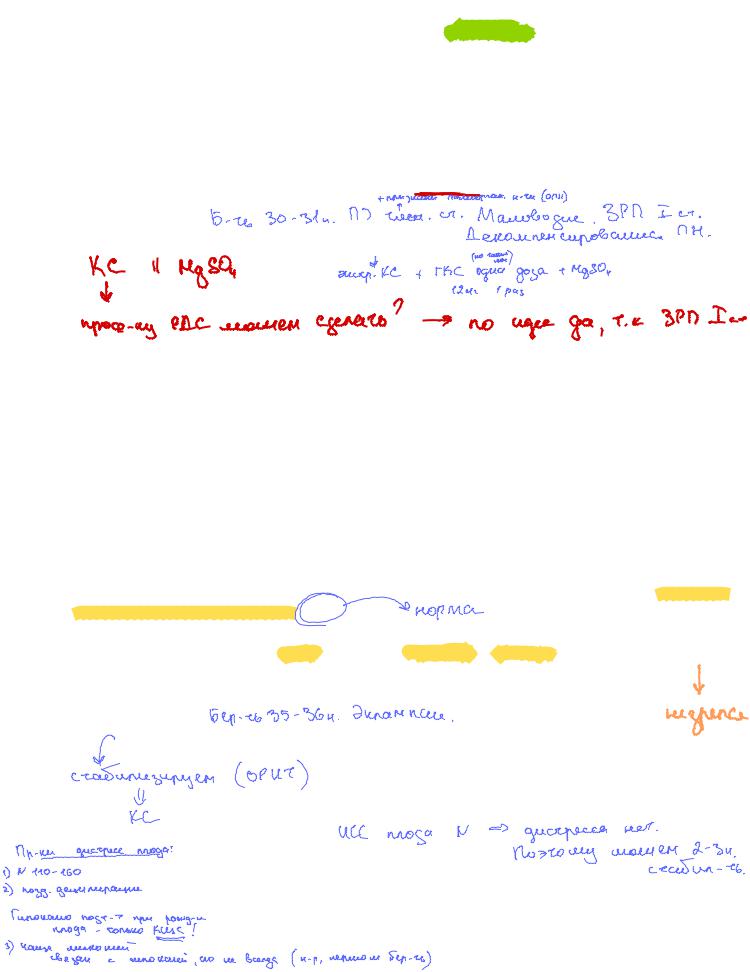 +признаки полиорган. н-ти (ОПН)
Б-ть 30-31н. ПЭ тяж. ст. Маловодие. ЗРП I ст.
Декомпенсированная ПН.
КС и MgSO₄
экстр. КС + ГКС одна доза + MgSO₄
12мг 1 раз
проф-ку РДС можем сделать? → по идее да, т.к ЗРП I ст
норма
Бер-ть 35-36н. Эклампсия.
стабилизируем (ОРИТ)
КС
ЧСС плода N ⇒ дистресса нет.
Поэтому можем 2-3ч.
стабил-ть.
Пр-ки дистресс плода:
1) N 110-160
2) позд. децелерации
Гипоксию пост-т при рожд-и
плода - только КЩС!
3) чаще меконий
связан с гипоксией, но не всегда (н-р, перенош бер-ть)